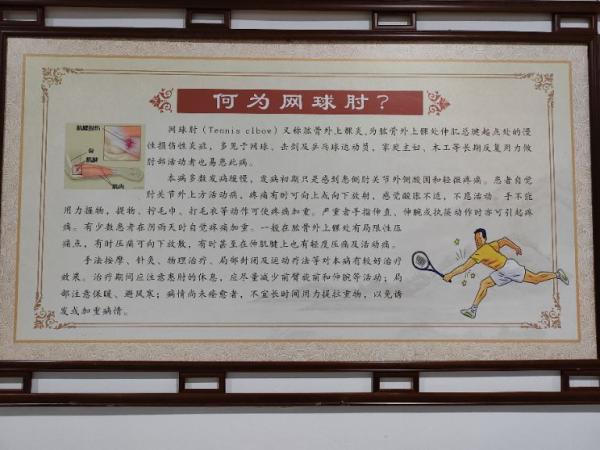 何为网球肘?
肌腱损伤
骨
肌腱
肌肉
网球肘(Tennis elbow)又称肱骨外上髁炎,为肱骨外上髁处伸肌总腱起点处的慢
性损伤性炎症,多见于网球、击剑及乒乓球运动员,家庭主妇、木工等长期反复用力做
肘部活动者也易患此病。
本病多数发病缓慢,发病初期只是感到患侧肘关节外侧酸困和轻微疼痛。患者自觉
肘关节外上方活动痛,疼痛有时可向上或向下放射,感觉酸胀不适,不愿活动。手不能
用力握物,提物、拧毛巾、打毛衣等动作可使疼痛加重。严重者手指伸直、伸腕或执筷动作时亦可引起疼
痛。有少数患者在阴雨天时自觉疼痛加重。一般在肱骨外上髁处有局限性压
痛点,有时压痛可向下放散,有时甚至在伸肌腱上也有轻度压痛及活动痛。
手法按摩、针灸、物理治疗、局部封闭及运动疗法等对本病有较好治疗
效果。治疗期间应注意患肘的休息,应尽量减少前臂旋前和伸腕等活动;局
部注意保暖、避风寒;病情尚未痊愈者,不宜长时间用力提拉重物,以免诱
发或加重病情。